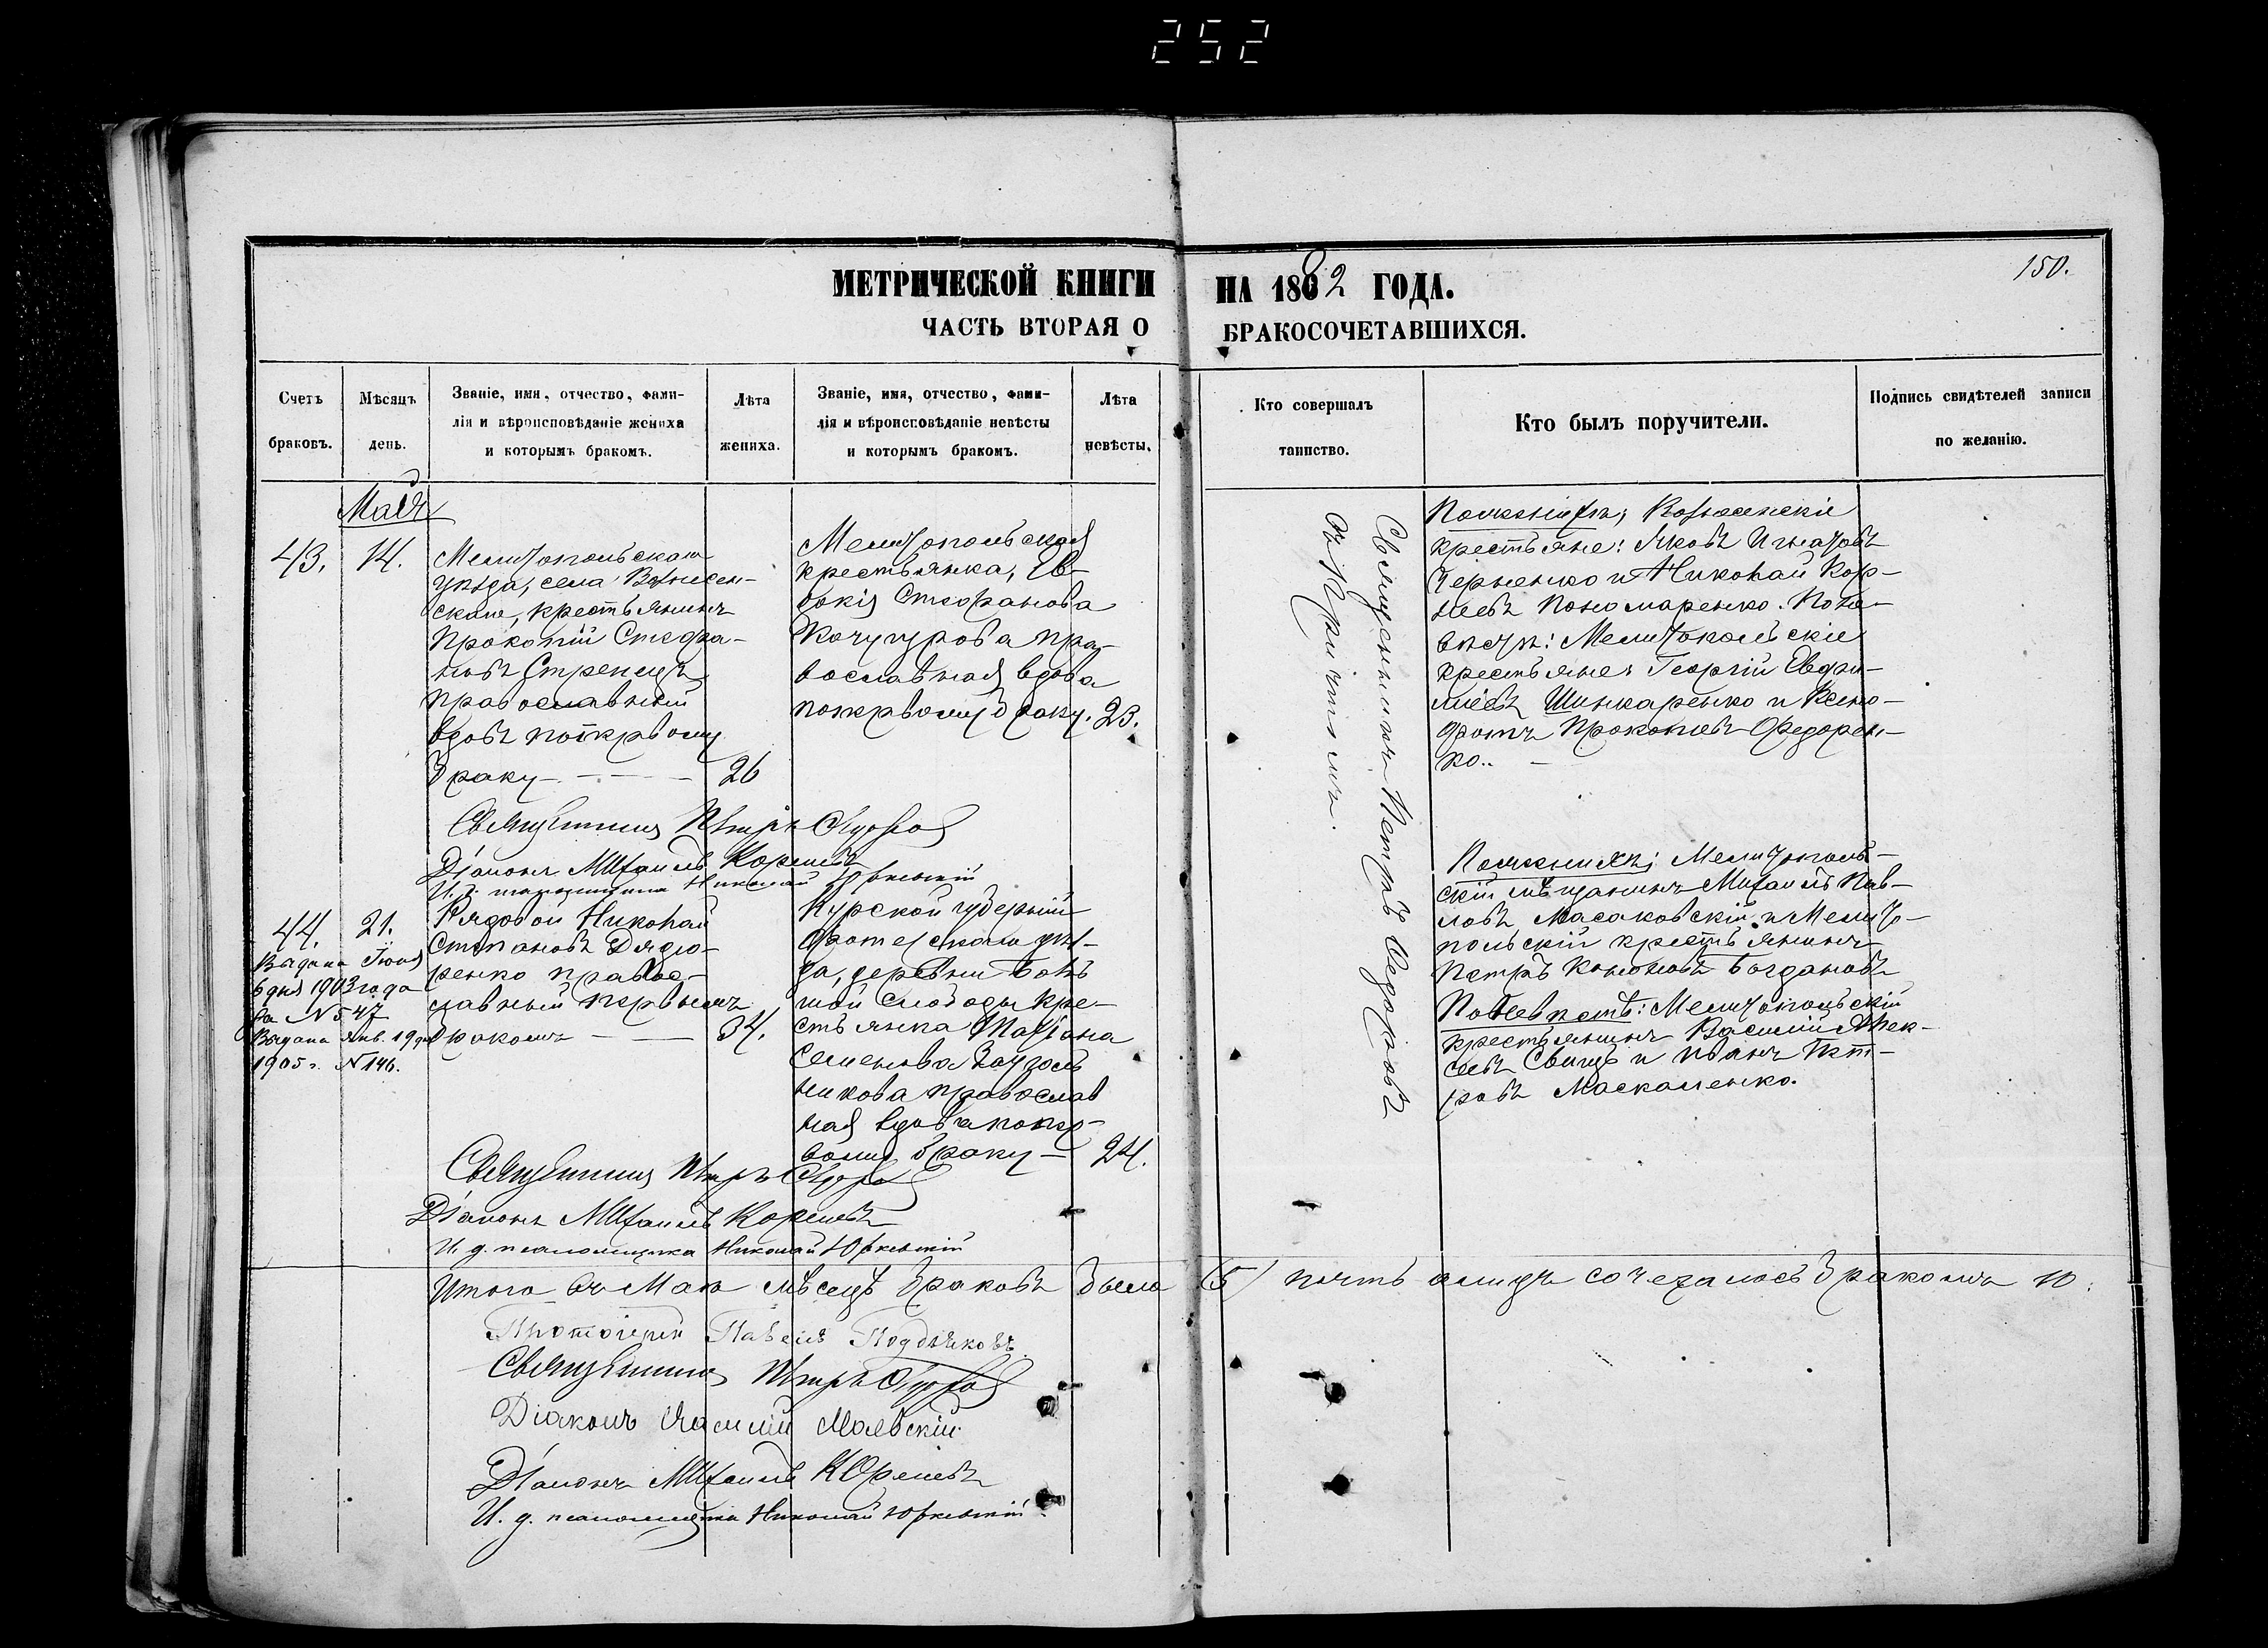 252
150.
МЕТРИЧЕСКОЙ КНИГИ НА 1882 ГОДА.
ЧАСТЬ ВТОРАЯ О БРАКОСОЧЕТАВШИХСЯ.
Счетъ
браковъ.
Мѣсяцъ
день.
Званіе, имя, отчество, фами-
лія и вѣроисповѣданіе жениха
и которымъ бракомъ.
Лѣта
жениха.
Званіе, имя, отчество, фами-
лія и вѣроисповѣданіе невѣсты
и которымъ бракомъ.
Лѣта
невѣсты.
Кто совершалъ
таинство.
Кто былъ поручители.
Подпись свидѣтелей записи
по желанію.
Май
43.
14.
Мелитопольскаго
уѣзда, села Вознесен-
скаго, крестьянинъ
Прокопій Стефа-
новъ
православный
вдовъ по первому
браку
26
Мелитопольская
крестьянка, Ев-
докія Стефанова
Кочугурова пра-
вославная вдова
по первому браку.
23.
Священникъ Петръ
съ причтомъ.
Вознесенскіе
крестьяне: Яковъ Игнатовъ
Черненко и Николай Кор-
неевъ Пономаренко. По не-
вѣстѣ: Мелитопольскіе
крестьяне: Георгій Евфи-
міевъ Шинкаренко и Ксено-
фонтъ Прокопіевъ Федорен-
ко.
Священникъ Петръ
Діаконъ Михаилъ Кореневъ
И. д. псаломщика Николай
44.
21.
Выдана Іюня
6 дня 1903 года
за N 547
Выдана Янв. 19 дня
1905 г. N 146.
Рядовой Николай
Степановъ Дядю-
ренко правос-
лавный первымъ
бракомъ
34.
Курской губерніи
Фатежскаго уѣз-
да, деревни Боль-
шой Слободы кре-
стьянка Татіана
Семенова
никова православ
ная вдова по пер-
вому браку
24.
По женихѣ: Мелитополь-
скій мѣщанинъ Михаилъ Пав-
ловъ Масаковскій и Мелито-
польскій крестьянинъ
Петръ Кононовъ Богдановъ
По невѣстѣ: Мелитопольскій
крестьянинъ Василій Алек-
сеевъ и Иванъ Пет-
ровъ Маскаленко.
Священникъ Петръ
Діаконъ Михаилъ Кореневъ
И. д. псаломщика Николай
Итого въ Маѣ мѣсяцѣ браковъ было (5) пять а лицъ сочеталось бракомъ 10.
Протоіерей Павелъ
Священникъ Петръ
Діаконъ Василій Маевскій
Діаконъ Михаилъ Кореневъ
И. д. псаломщика Николай